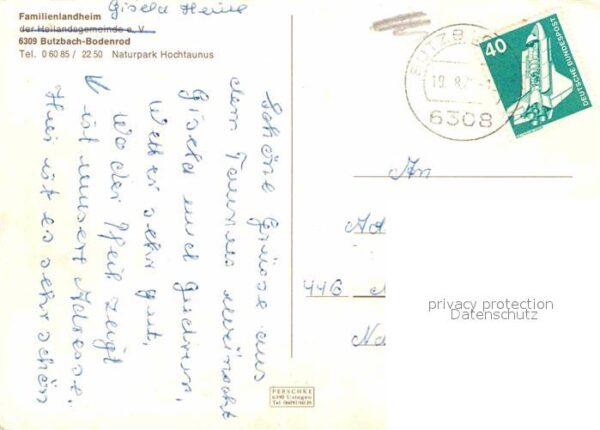 Gisela Heine
Familienlandheim
der Heilandsgemeinde e. V.
6309 Butzbach-Bodenrod
Tel. 0 60 85 / 22 50 Naturpark Hochtaunus
Schöne Grüsse aus
dem Taunus wünscht
Gisela und Gudrun,
Wetter sehr gut,
Wo der Pfeil zeigt
ist unsere Adresse.
Hier ist es sehr schön
BUTZBACH
19. 8.
6308
40
DEUTSCHE BUNDESPOST
An
446
privacy protection
Datenschutz
PERSCHKE